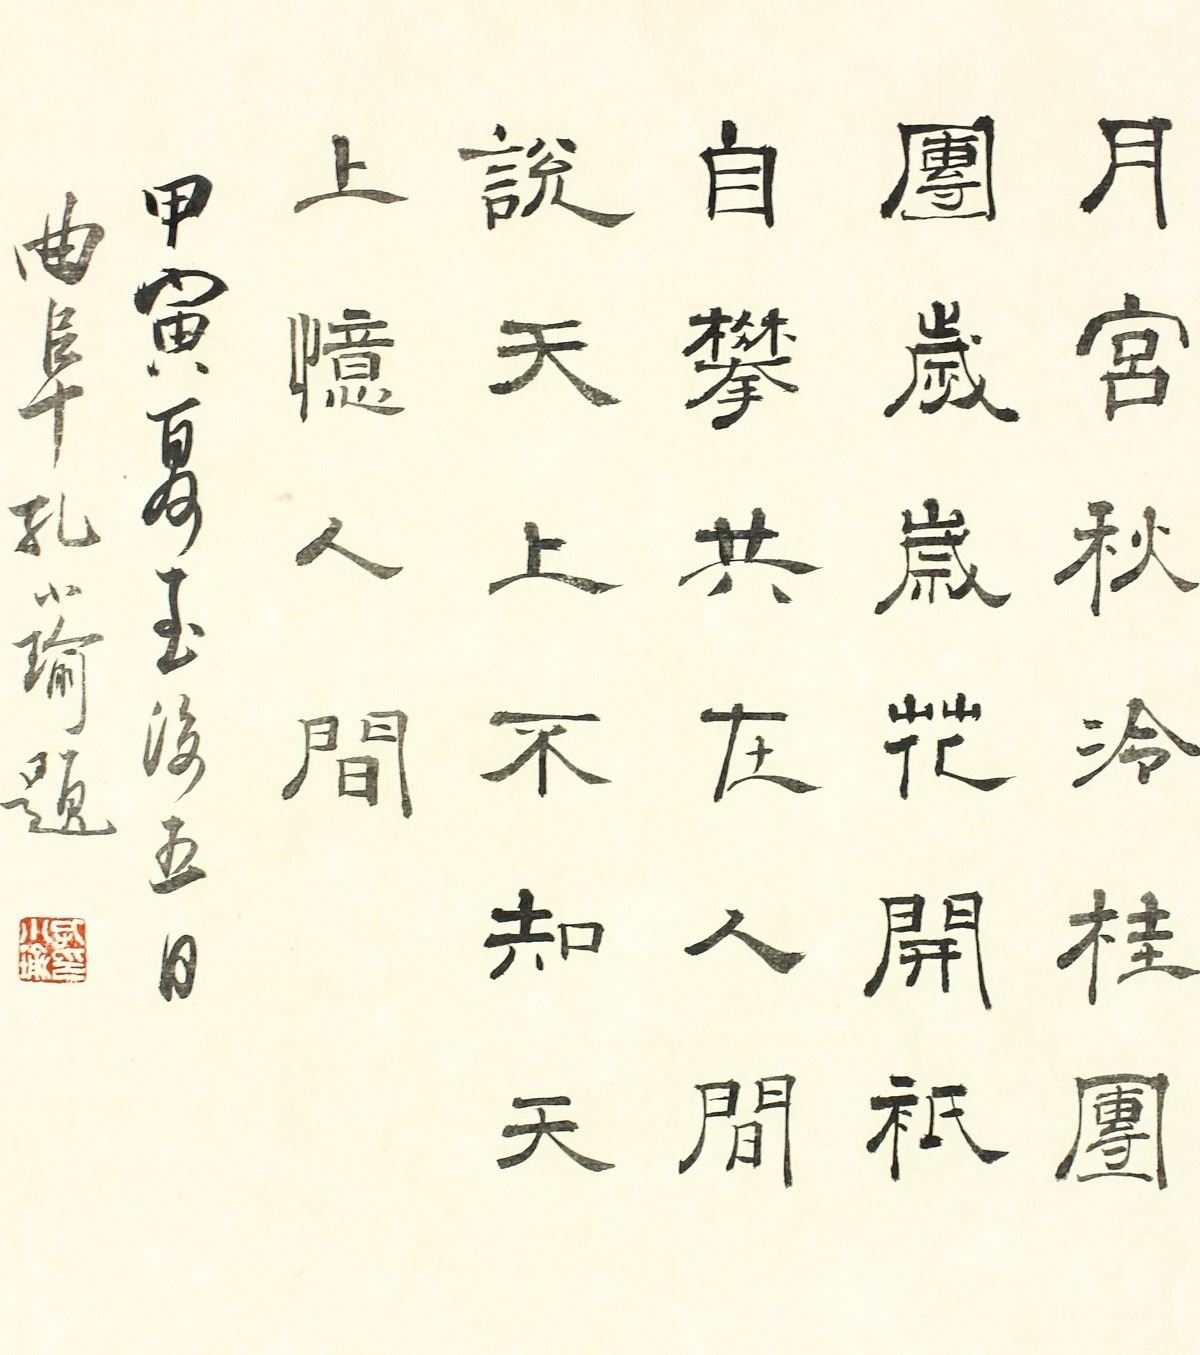 月宮秋冷桂團
團歲歲花開祇
自攀共在人間
說天上不知天
上憶人間
甲寅夏至後五日
曲阜孔小瑜題
孔小瑜印